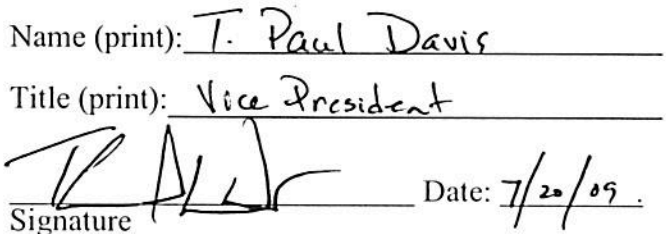 Name (print): T. Paul Davis
Title (print): Vice President
Date: 7/20/09.
Signature